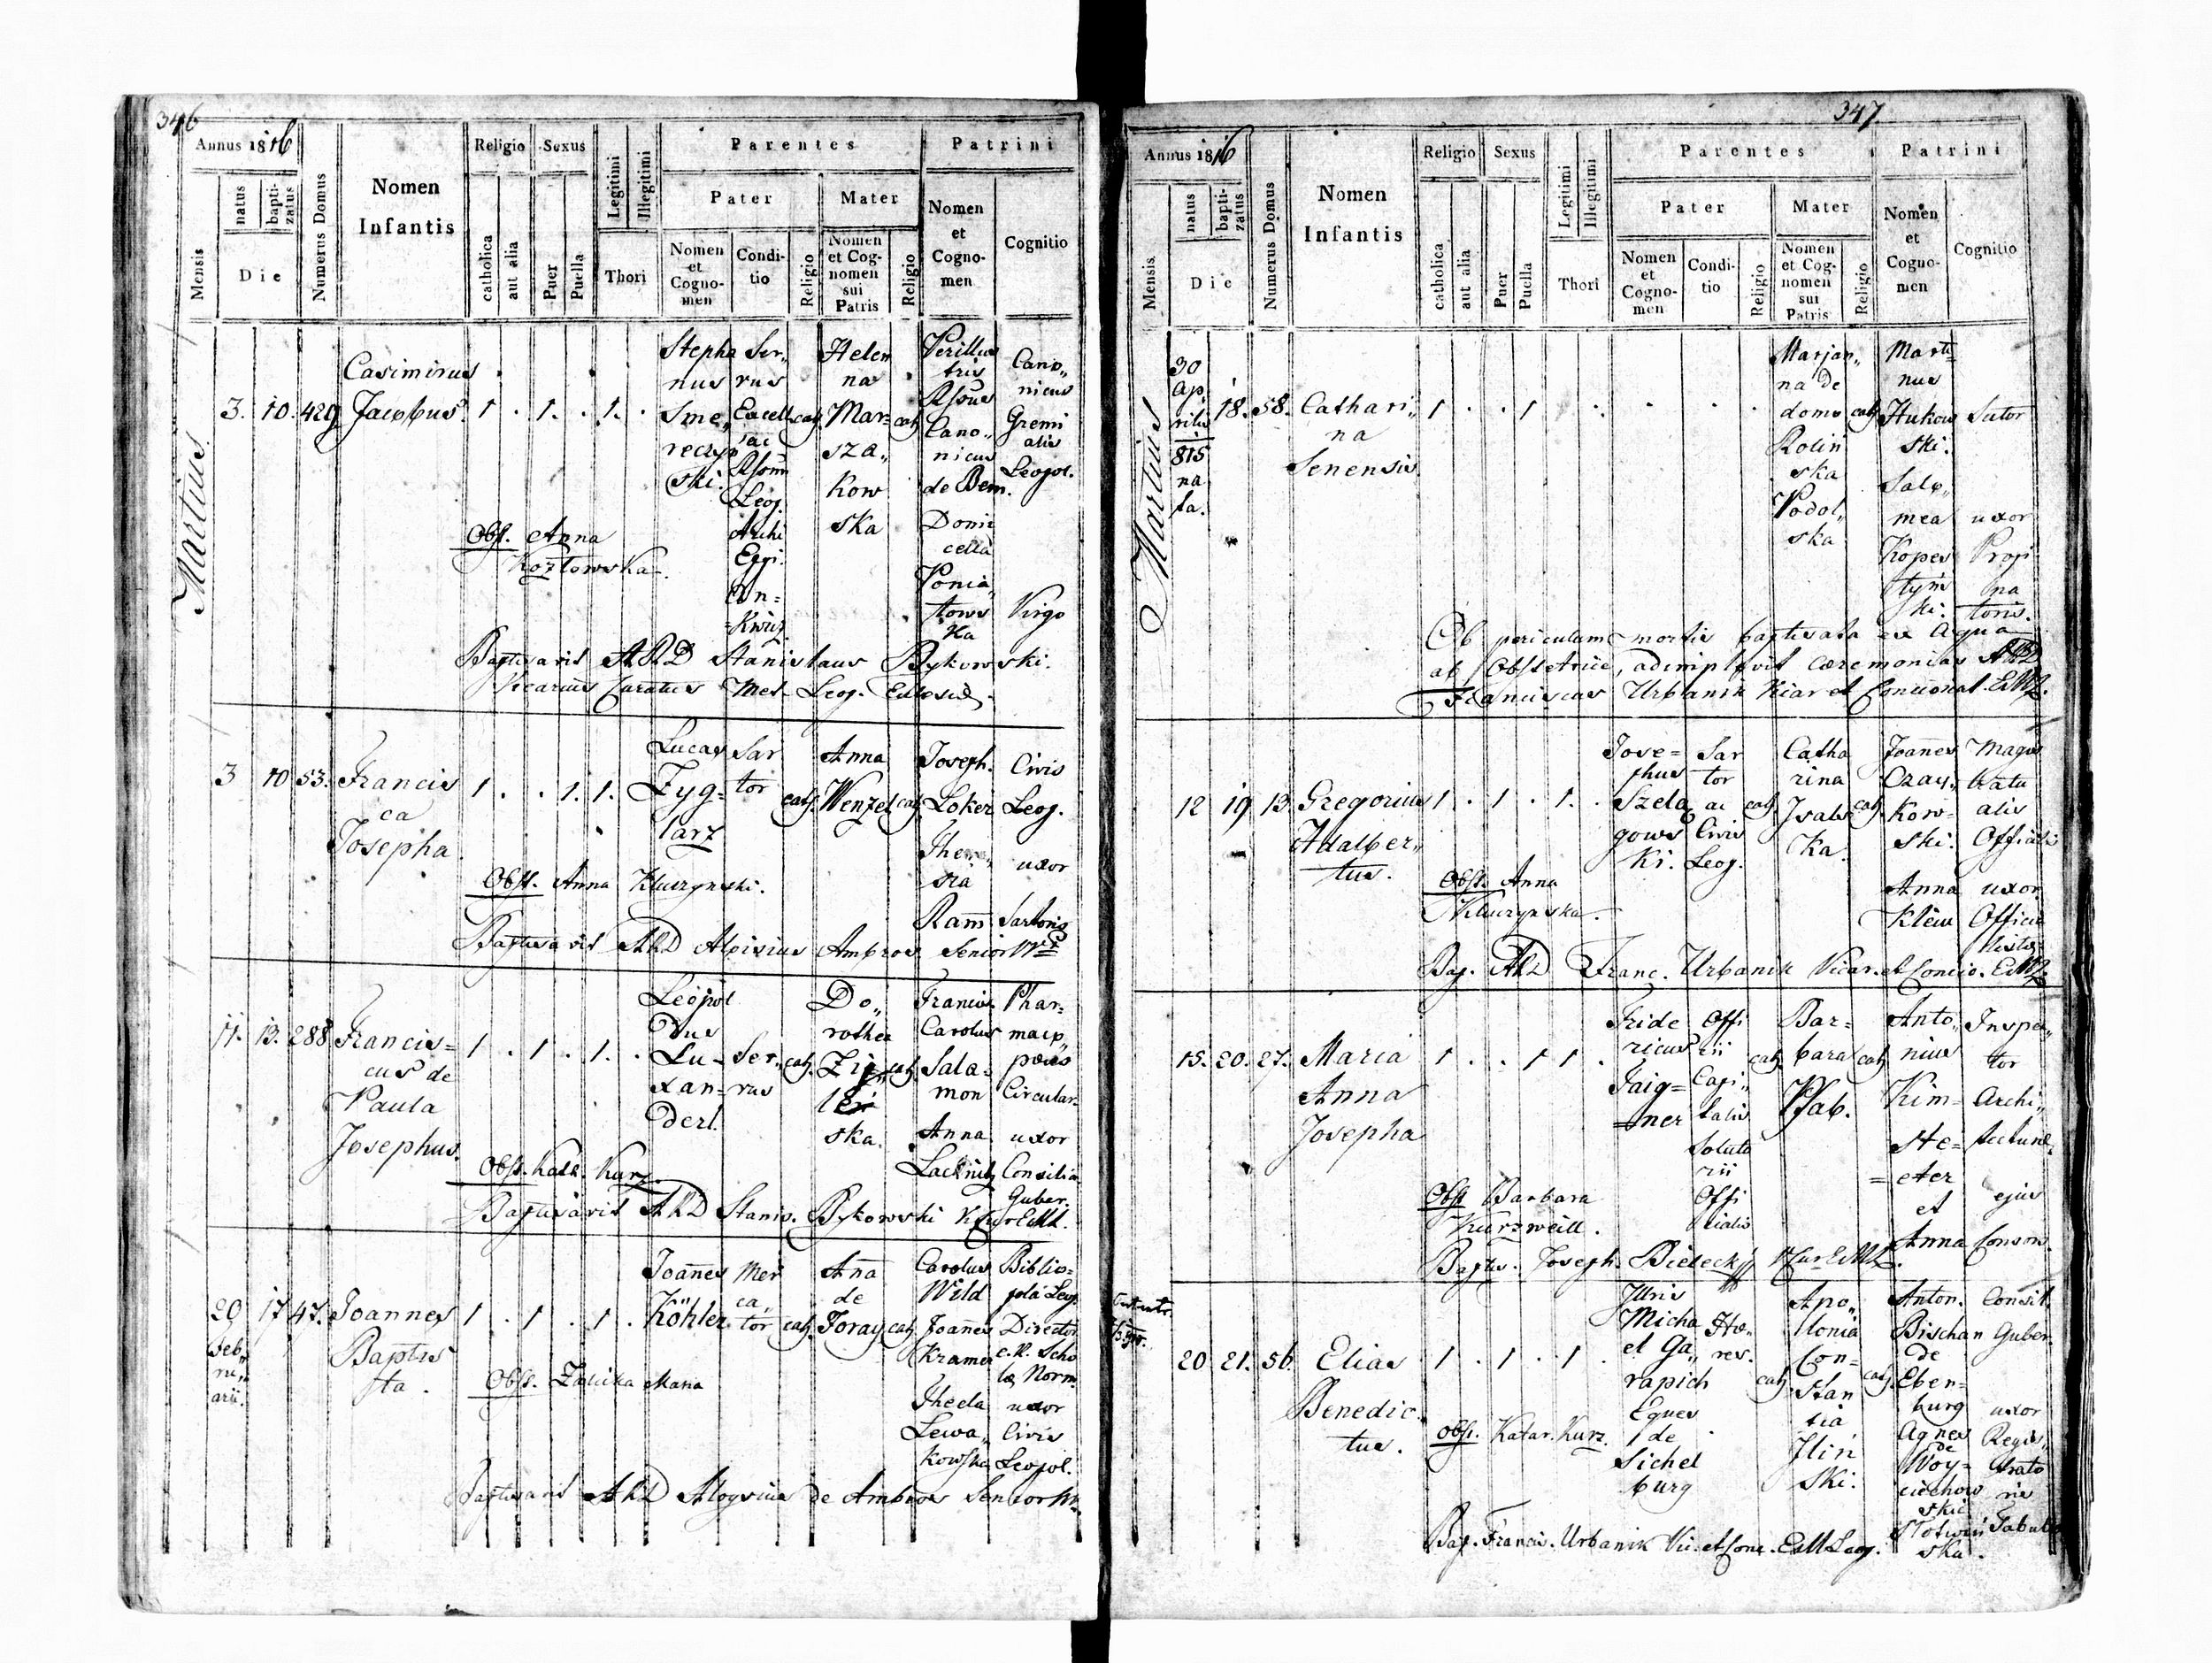 346
Annus 1816
Religio Sexus
Legitimi
Illegitimi
Parentes
Patrini
Mensis
natus
bapti-
zatus
Die
Numerus Domus
Nomen
Infantis
catholica
aut alia
Puer
Puella
Thori
Pater
Mater
Nomen
et
Cogno-
men
Condi-
tio
Religio
Nomen
et Cog-
nomen
sui
Patris
Religio
Nomen
et
Cogno-
men
Cognitio
Martius
3. 10. 429 Casimirus
Jacobus
1 . 1. . 1. .
Stepha
nus
Sme„
reczyn
ski.
Ser„
vus
Excell
Leop.
Archi
Eppi.
cath.
Helen
na
Mar=
sza„
kow
ska
cath.
Cano„
nicus
de Bem.
Domi
cella
Ponia„
tows
ka
Cano„
nicus
Gremi
alis
Leopol.
Virgo
Obst. Anna
Kozlowska.
Baptisavit ARD Stanislaus Bykowski.
Vicarius Curatus Met. Leop. Ecclesiae.
3 10 53. Francis
ca
Josepha
1 . . 1. 1.
Lucas
Zyg=
larz
Sar
tor
cath.
Anna
Wenzel
cath.
Joseph.
Loker
There„
sia
Ram
Civis
Leop.
uxor
Sartoris
Obst. Anna Kluczynski.
Baptisavit ARD Aloisius Ambros Senior
11. 13. 288 Francis=
cus de
Paula
Josephus.
1 . 1 . 1. .
Leopol
dus
Lu-
xan-
derl.
Ser„
vus
cath.
Do„
rothea
ska.
cath.
Francis.
Carolus
Sala-
mon
Anna
Phar=
maco„
poeus
Circular.
uxor
Consilia
Guber.
Obst. Kath. Kurz.
Baptisavit ARD Stanis. Bykowski
20
Feb„
ru„
arii.
17 47. Joannes
Baptis
ta.
1 . 1 . 1 .
Joannes
Köhler
Mer
ca„
tor
cath.
Anna
de
Foray
cath.
Carolus
Wild
Joannes
Kramer
Thecla
Lewa„
kowska
Biblio=
pola Leop.
Director
c.R. Scho
lae Norm.
uxor
Civis
Leopol.
Obst. Zalicka Maria
Baptisavit ARD Aloysius de Ambros Senior
347
Annus 1816
Religio Sexus
Legitimi
Illegitimi
Parentes
Patrini
Mensis
natus
bapti-
zatus
Die
Numerus Domus
Nomen
Infantis
catholica
aut alia
Puer
Puella
Thori
Pater
Mater
Nomen
et
Cogno-
men
Condi-
tio
Religio
Nomen
et Cog-
nomen
sui
Patris
Religio
Nomen
et
Cogno-
men
Cognitio
Martius
30
Ap„
rilis
1815
na
ta.
18. 58. Cathari„
na
Senensis.
1 . . 1
Marjan„
na de
domo
Rolin
ska
Podol„
ska
cath.
Marti=
nus
Hukow
ski.
Salo„
mea
Kopes
tyns
ki.
Sutor
uxor
Propi
na
toris.
Ob periculum mortis baptisata ex Aqua
ab Obstetrice, adimplevit caeremonias ARD
Franciscus Urbanik Vicar et Concionat.
12 19 13. Gregorius
Adalber„
tus.
1 . 1 . 1. .
Jose=
phus
Szela
gows
ki.
Sar
tor
ac
Civis
Leop.
cath.
Catha
rina
Jsabs
ka.
cath.
Joannes
Czay„
kow=
ski.
Anna
Klein
Magis
tratu
alis
Officialis
uxor
Obst. Anna
Kluczynska.
Bap. ARD Franc. Urbanik Vicar. et Concio.
15. 20. 27. Maria
Anna
Josepha
1 . . 1 1 .
Fride
ricus
Jaig=
ner
Offi
cii
Capi„
talis
Soluto
rii
Offi
cialis
cath.
Bar=
bara
Pfab.
cath.
Anto„
nius
Kim=
ste=
eter
et
Anna
Inspec„
tor
Archi„
tecturae
ejus
Consors.
Obst. Barbara
Kurzweill.
Baptis. Joseph. Bielecky
20 21. 56. Elias
Benedic
tus.
1 . 1 . 1 .
Jllris
Micha
el Ga„
rapich
Eques
de
Sichel
burg
Hae„
res.
cath.
Apo„
lonia
Con=
stan
tia
Jlin
ski.
cath.
Anton.
Bischan
de
Eben=
burg
Agnes
de
Woy=
ciechow
skie
Slotwin
ska.
Consil.
Guber.
uxor
Regis„
trato
ris
Tabul
Obst. Katar. Kurz.
Bap. Francis. Urbanik Vic. et Conc. E.M. Leop.